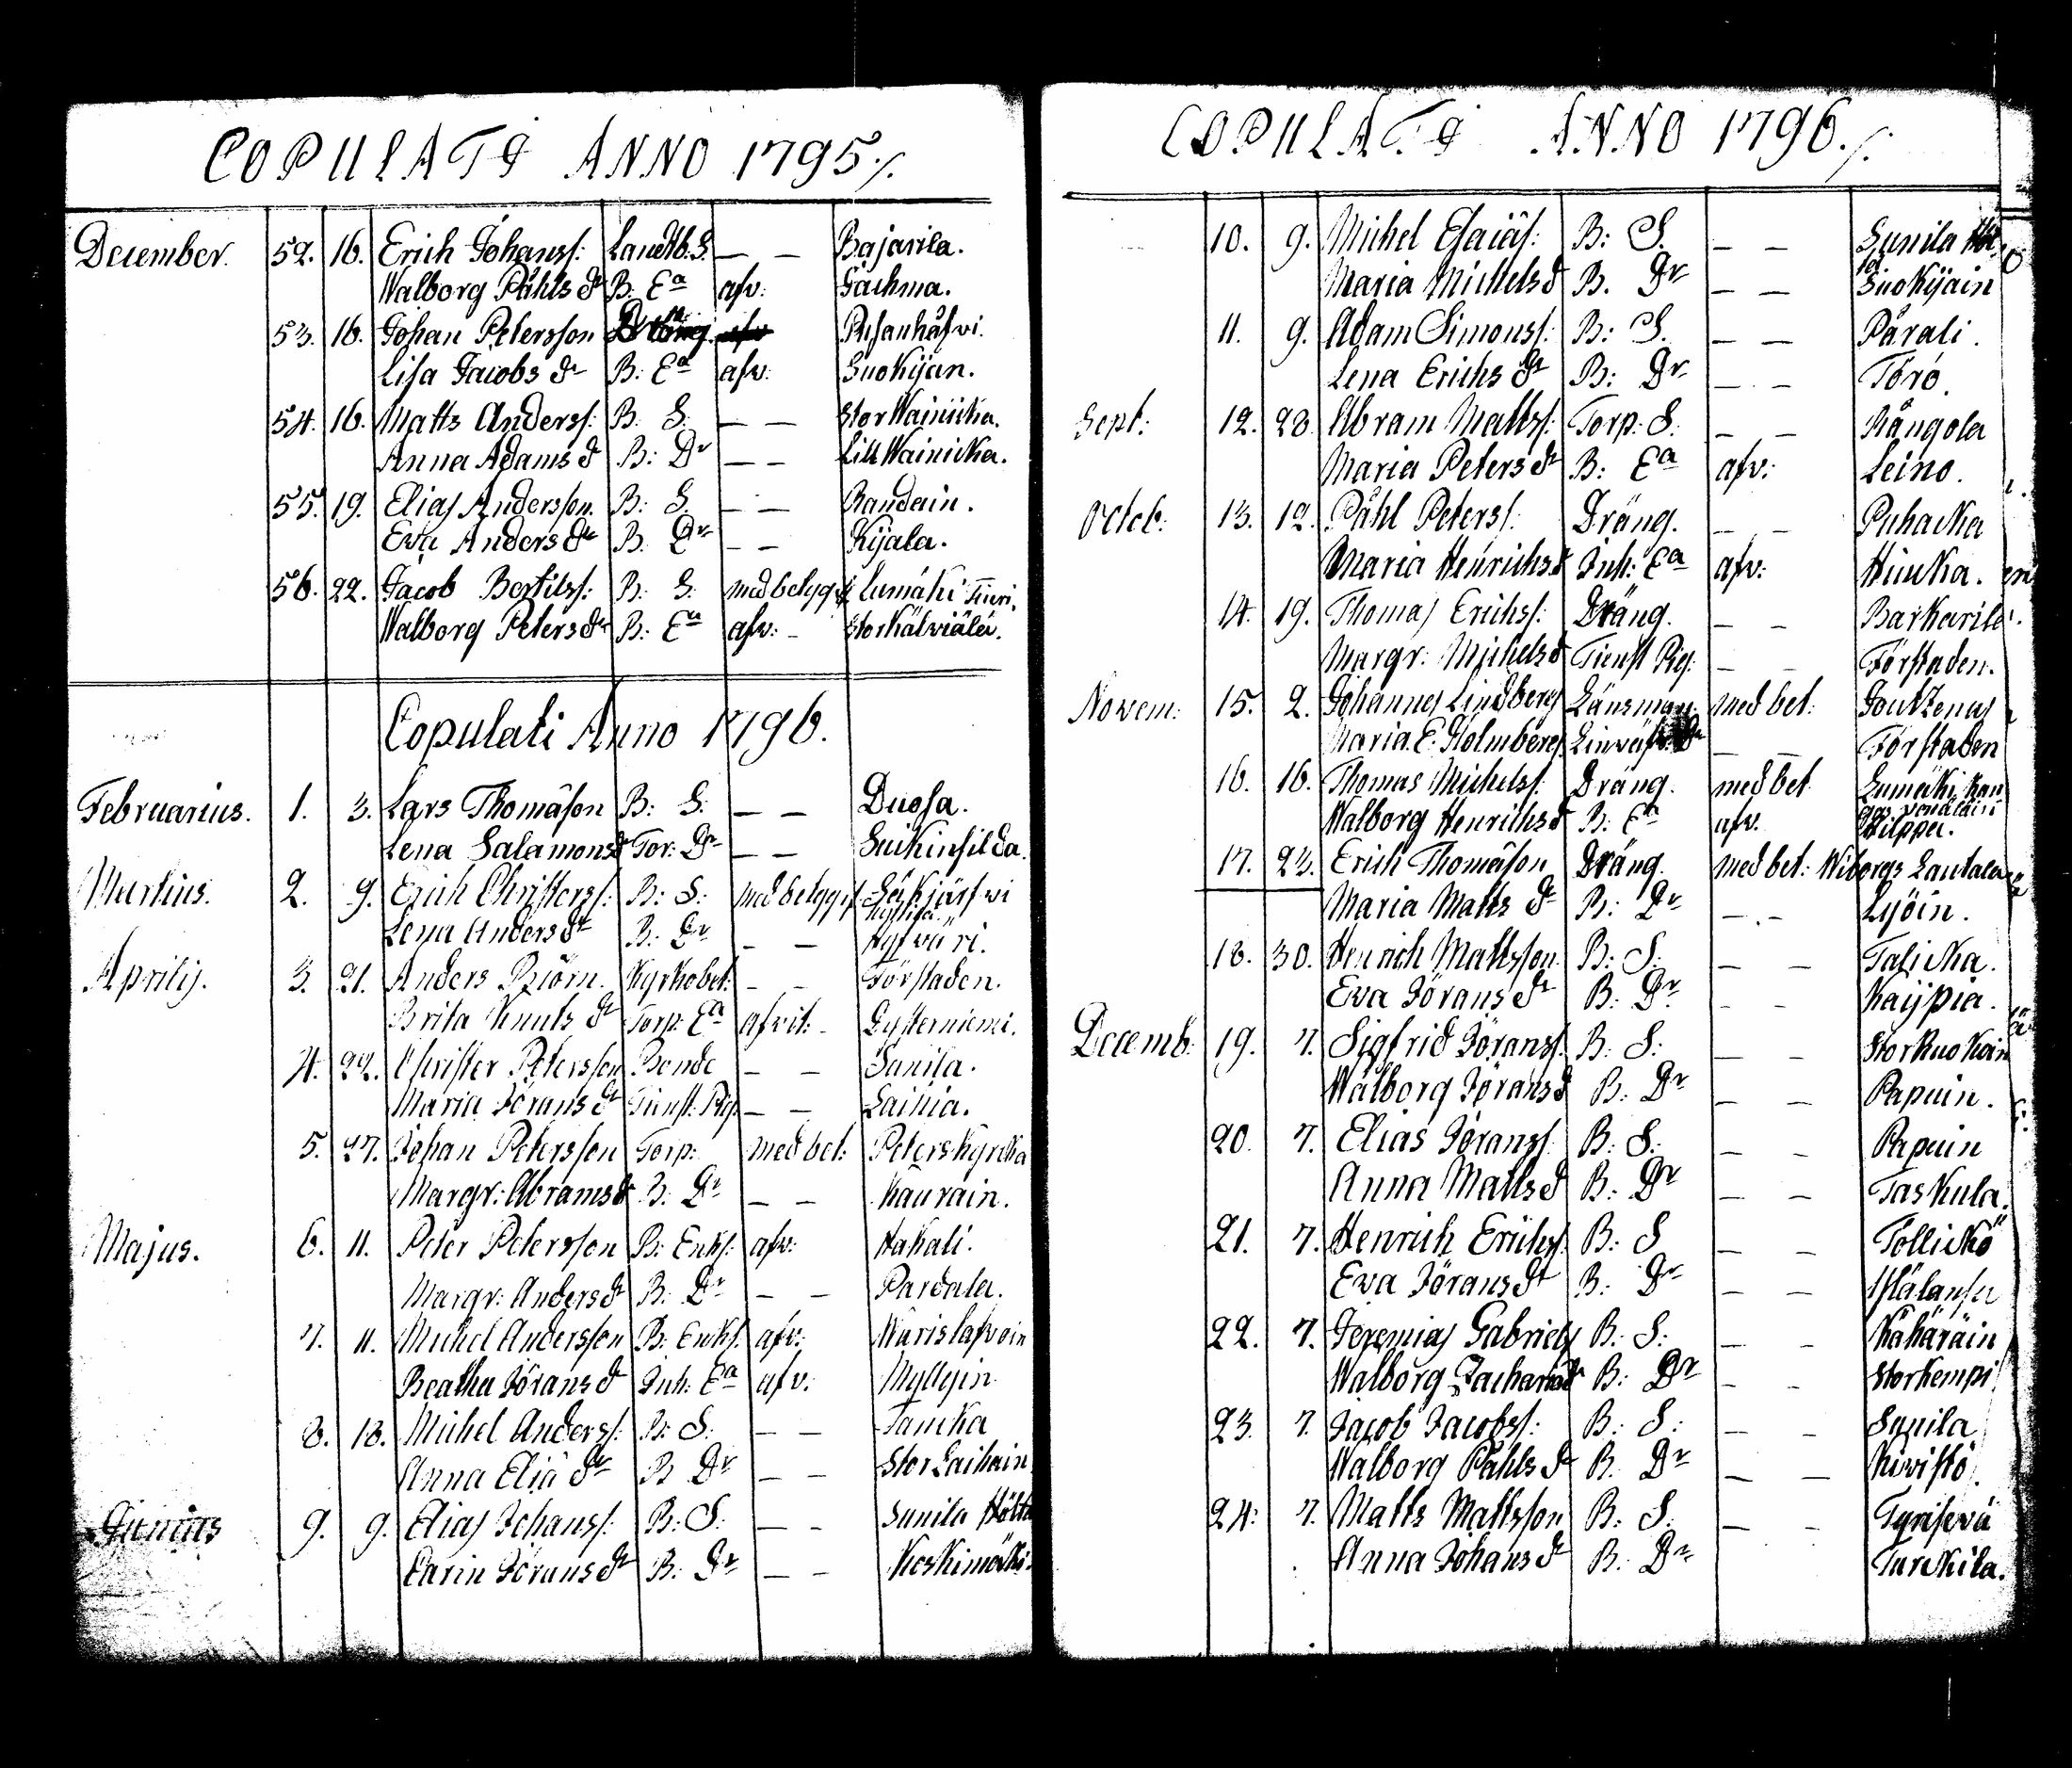 COPULATI ANNO 1795./.
December. 52. 16. Erich Johanss: Landtb. S. — — Bajarila.
Walborg Påhls dr B: Ea afv: Gächma.
53. 16. Johan Petersson Pusanhåfvi.
Lisa Jacobs dr B: Ea afv: Suokijan.
54. 16. Matts Anderss: B: S. — — Stor Wainicka.
Anna Adams d B: Dr — — Lill Wainicka.
55. 19. Elias Andersson. B: S. — — Randain.
Eva Anders dr B: Dr — — Kijala.
56. 22. Jacob Bertilss: B: S. med betyg Lumäki
Walborg Peters dr B: Ea afv: - Storkälviälä.
Copulati Anno 1796.
Februarius. 1. 3. Lars Thomåson B: S: — — Duosa.
Lena Salamons d Tor: Dr — — Suikinsilda.
Martius. 2. 9. Erich Christerss: B: S: med betyg Säkjärfvi
Lena Anders dr B: Dr — — Hyfväri.
Aprilij. 3. 21. Anders Biörn. Kyrkobet: — — Förstaden.
Brita Knuts dr Torp: Ea afvit: - Lysterniemi.
4. 22. Christer Petersson Bonde — — Sunila.
Maria Jörans dr Tienst: Pig: — — Lainia.
5. 27. Johan Petersson Torp: med bet: Peterskyrcka
Margr: Abrams d B: Dr — — Kaurain.
Majus. 6. 11. Peter Petersson B: Enks: afv: Hakali.
Margr: Anders dr B: Dr — — Pardala.
7. 11. Michel Andersson B: Enks: afv:
Beatha Jörans d Inh: Ea afv: Myllyin
8. 18. Michel Anderss: B: S: — —
Anna Eliæ dr B Dr — — Stor Laihain
Junius 9. 9. Elias Johanss: B: S: — — Sunila
Carin Jörans dr B: Dr — — Koskimäki.
COPULATI ANNO 1796./.
10. 9. Michel Esaiäs: B: S. — — Sunila
Maria Michels d B. Dr — — Suokijain
11. 9. Adam Simonss: B: S. — — Pärali.
Lena Erichs dr B: Dr — — Törö.
Sept: 12. 28. Abram Mattss: Torp: S: — — Rångola
Maria Peters dr B: Ea afv: Leino.
Octob: 13. 12. Påhl Peterss: Dräng. — — Puhacka
Maria Henrichs d Inh: Ea afv:
14. 19. Thomas Erichss: Dräng. — — Barkarila.
Margr: Michels d Tienst Pig: — — Förstaden.
Novem: 15. 2. Johannes Lindberg Länsman. med bet: Joutzenas
Maria E. Holmberg — — Förstaden
16. 16. Thomas Michelss: Dräng. med bet Lumäki
Walborg Henrichs d B: Ea afv. Hilppa.
17. 23. Erich Thomåson Dräng. med bet: Wiborgs Lautala
Maria Matts dr B: Dr — — Lyöin.
18. 30. Henrich Mattsson B: S: — — Talicka.
Eva Jörans dr B: Dr — — Kaijpia.
Decemb: 19. 7. Sigfrid Jöranss: B: S: — — Stor Kuokain
Walborg Jörans d B: Dr — — Papuin.
20. 7. Elias Jöranss: B: S: — — Papuin
Anna Matts d B: Dr — — Taskula.
21. 7. Henrich Erichss: B: S — — Töllickö
Eva Jörans dr B: Dr — —
22. 7. Jeremias Gabriels B: S: — — Kähäräin
Walborg Zachariæ dr B: Dr — — Storkempi
23. 7. Jacob Jacobss: B: S: — — Sunila
Walborg Påhls dr B. Dr — — Kivistö
24. 7. Matts Mattsson B: S: — — Tyrisevä
Anna Johans dr B: Dr Turckila.